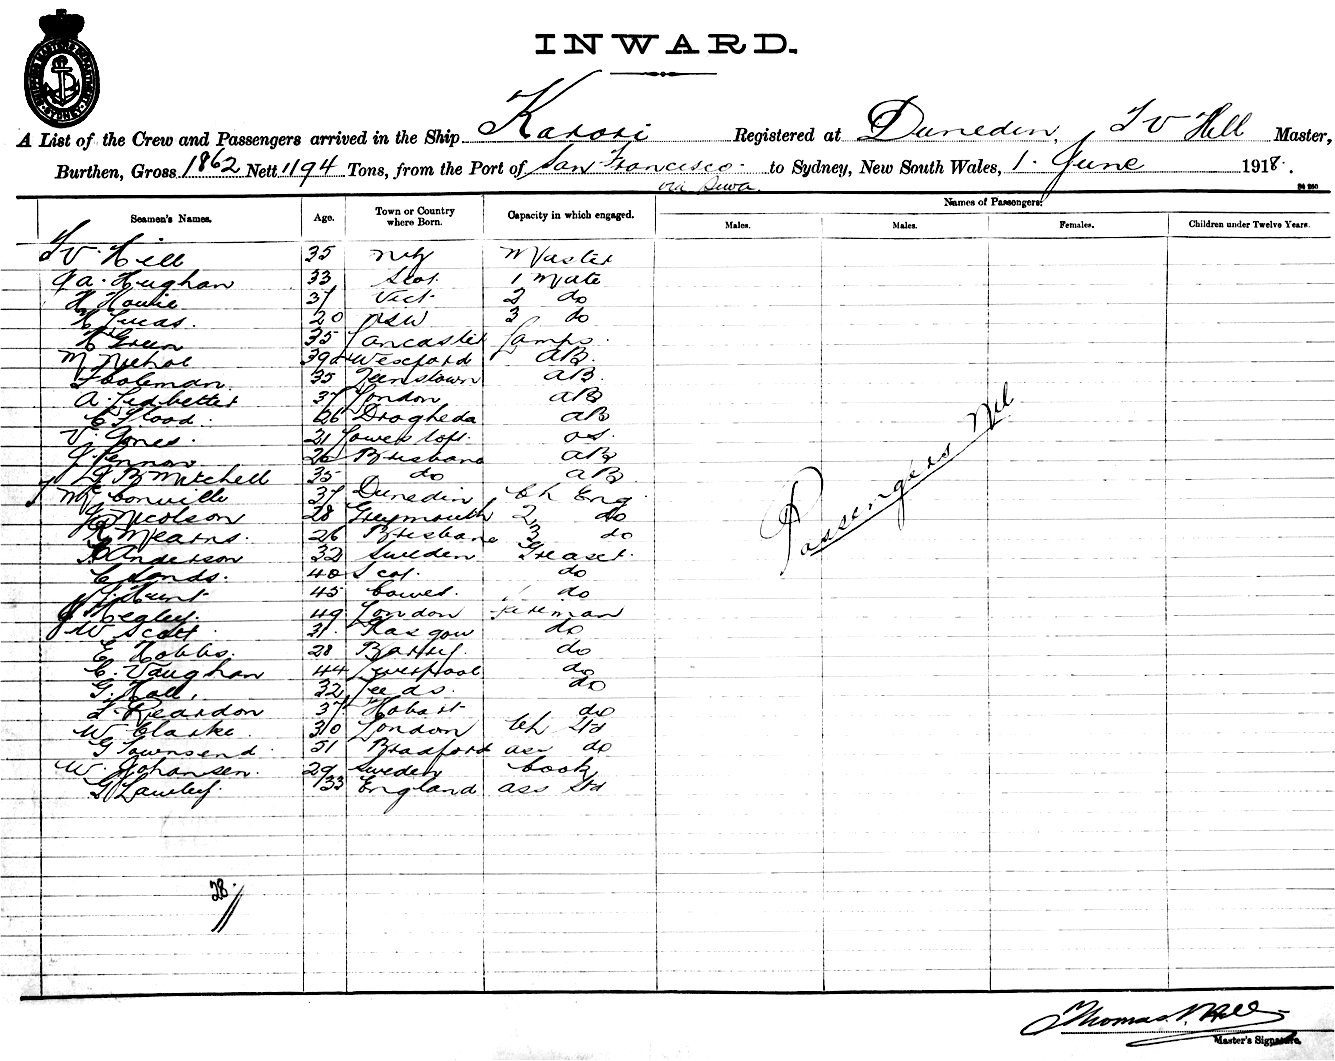 INWARD.
A List of the Crew and Passengers arrived in the Ship Karori Registered at Duneden, T V Hill Master,
Burthen, Gross 1862 Nett 1194 Tons, from the Port of San Francisco to Sydney, New South Wales, 1. June 1918.
via Suva.
Names of Passengers.
Seamen's Names. Age. Town or Country where Born. Capacity in which engaged. Males. Males. Females. Children under Twelve Years.
T V Hill 35 Master
J A. Hughan 33 Scot. 1 Mate
H Howie 31 Vict. 2 do
Lucas. 20 NSW 3 do
H Green 35 Lancaster Lamps.
M Nichol 39 Wexford AB.
35 AB.
A. Ledbetter 37 London AB
C Flood. 26 Drogheda AB
V. Jones. 21 Lowestoft. OS.
J. Lennon 26 Brisbane AB
B Mitchell 35 do AB
Mc Conville 37 Dunedin Ch Eng
Nicolson 28 Greymouth 2 do
Mearns. 26 Brisbane 3 do
Anderson 32 Sweden Greaser.
C Sands. 40 Scot. do
Hunt 45 Cowes. do
Hegley. 49 London Fireman
W Scott 31 Glasgow do
E Hobbs. 28 Barry. do
C. Vaughan 44 Liverpool do
G. Hall, 32 Leeds. do
Reardon 37 Hobart do
W Clarke. 30 London Ch Std
G Townsend. 51 Bradford ass do
W. Johansen. 29 Sweden Cook
G Lawley. 33 England ass Std
Passengers Nil.
28.
Thomas V. Hill
Master's Signature.